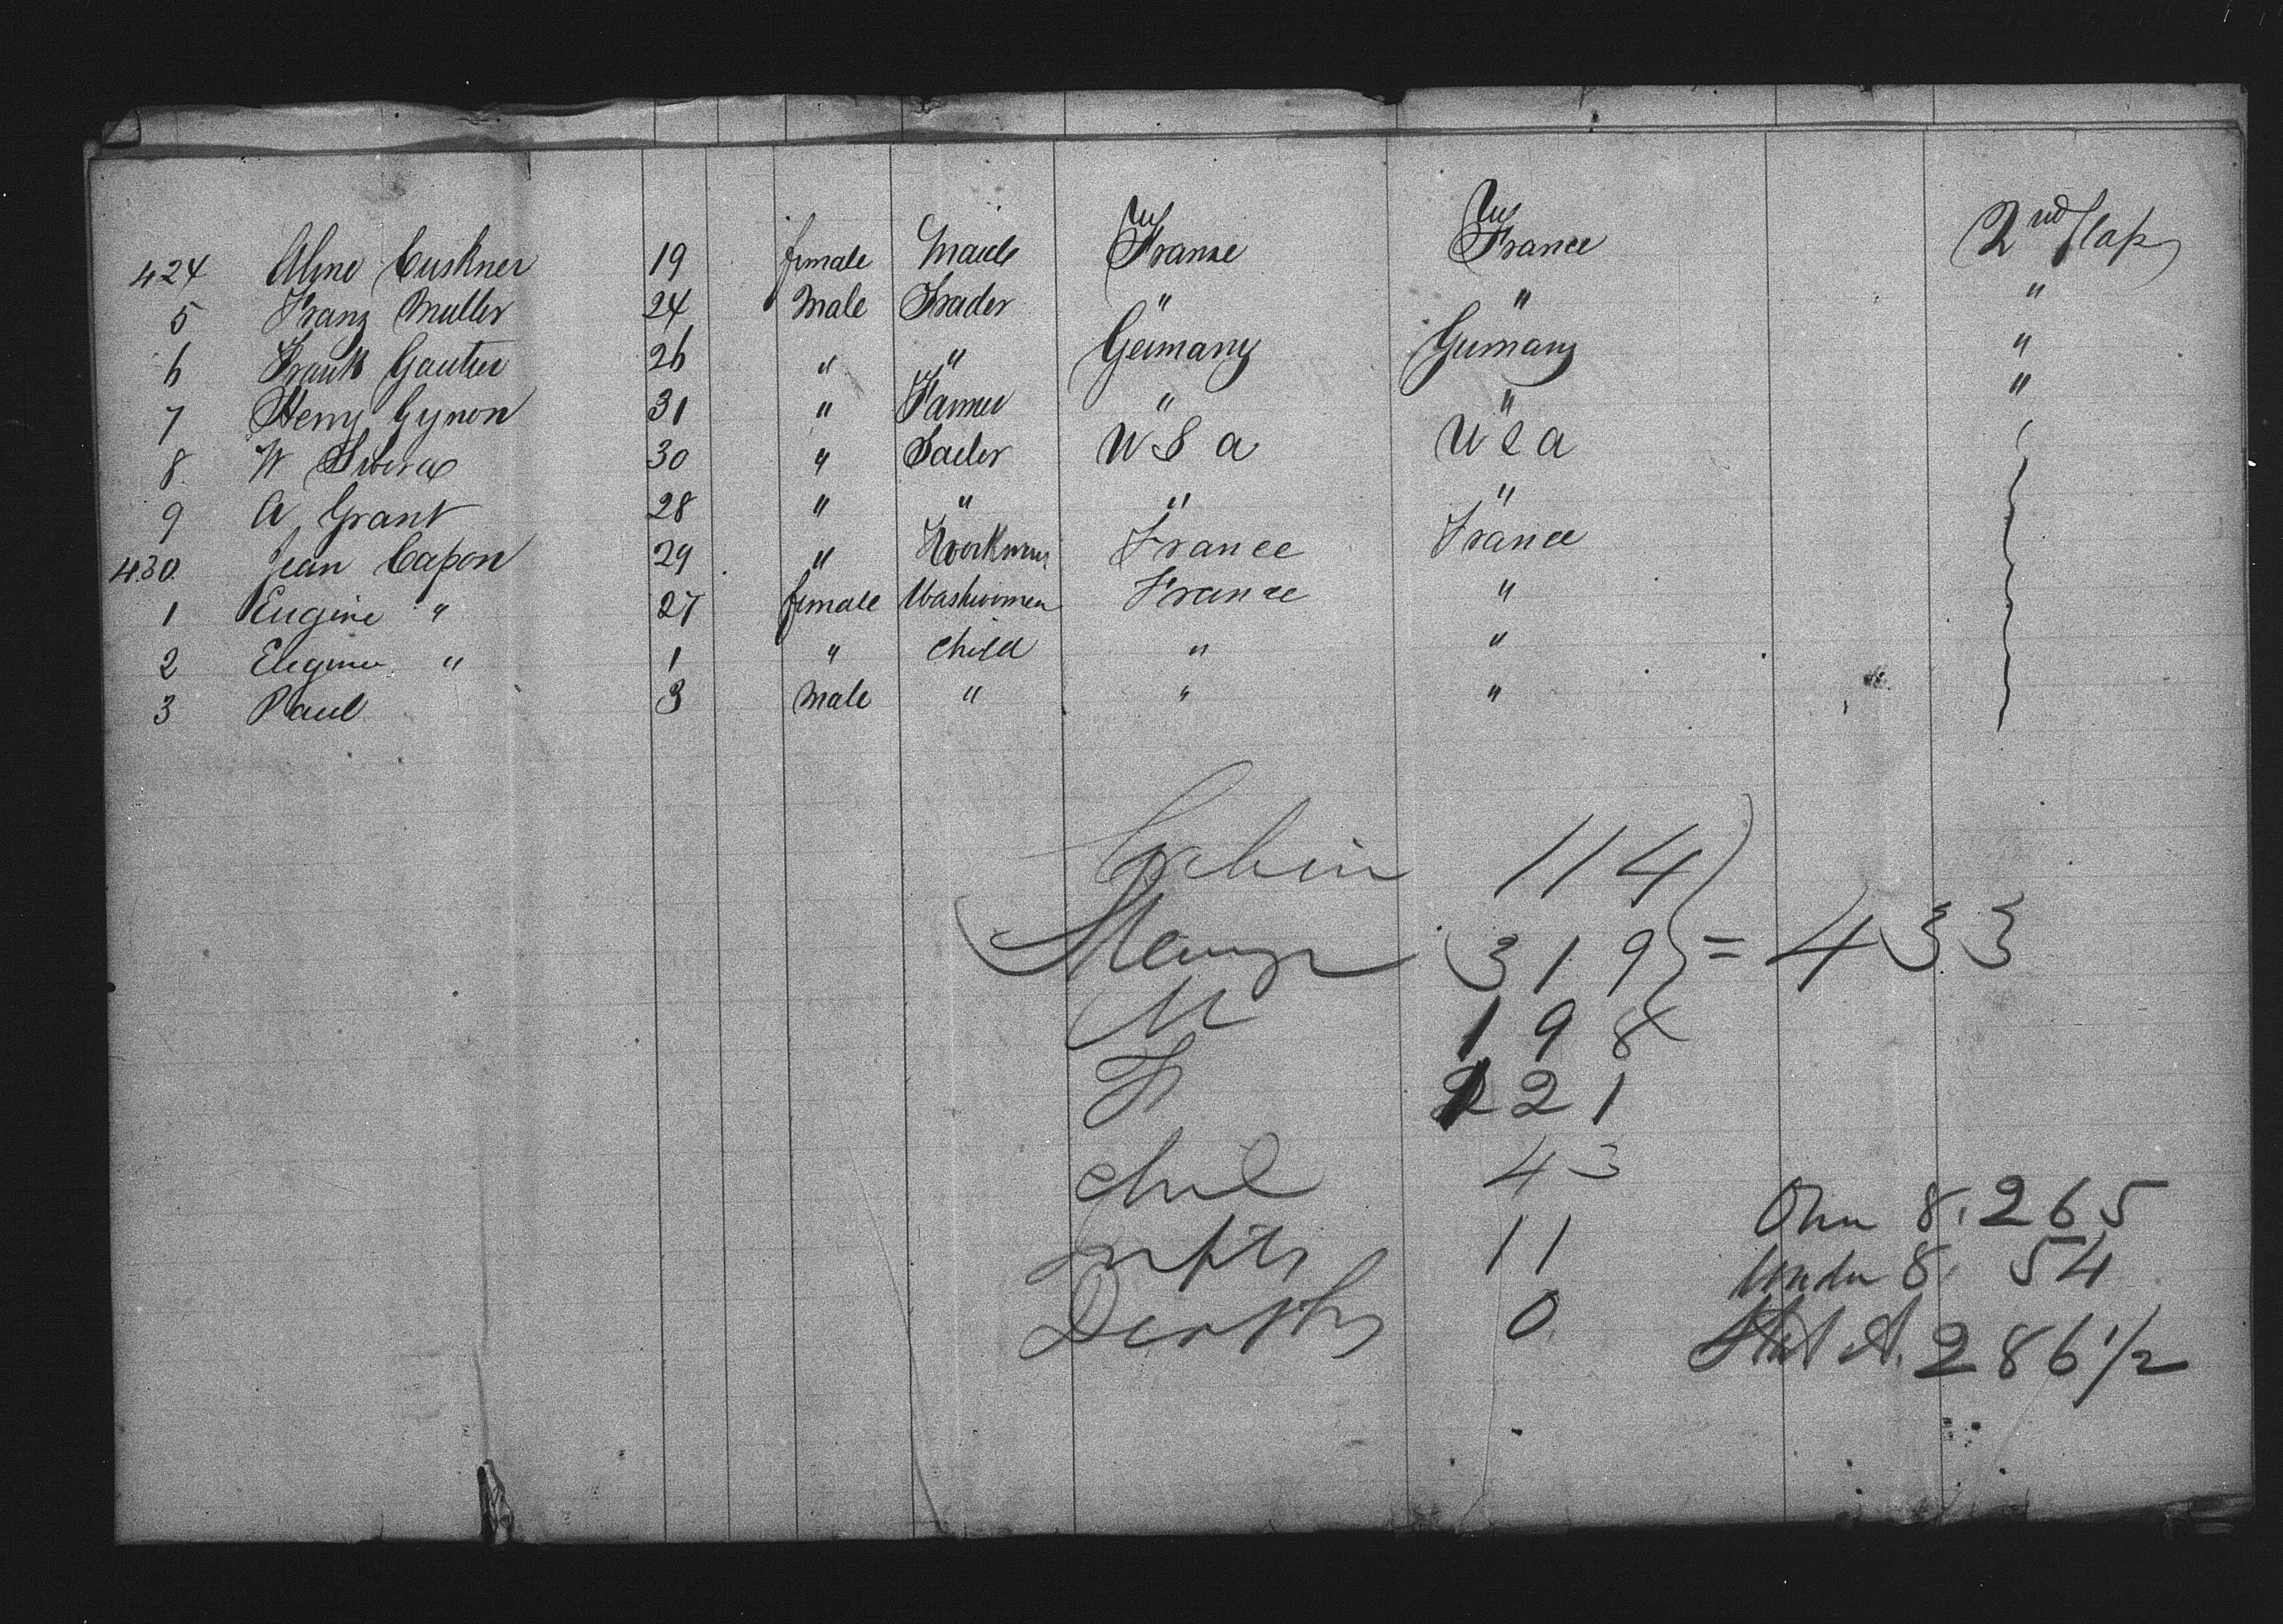 424 Aline Cuskner 19 female Maide France France 2nd Clap
5 Franz Muller 24 Male Trader " " "
6 Frank Gautier 26 " " Germany Germany "
7 Henry Gynon 31 " Farmer " " "
8 W 30 " U S A U S A
9 A Grant 28 " " " "
430. Jean Capon 29 " Workman France France
1 Eugine " 27 female Washwomen France "
2 Eugine " 1 " child " "
3 Paul 3 male " " "
Cabin 114
Steerge 319 = 433
M 198
F 221
chil 43
infts 11
Deaths 0.
Over 8. 265
Under 8. 54
Stat A. 286 1/2